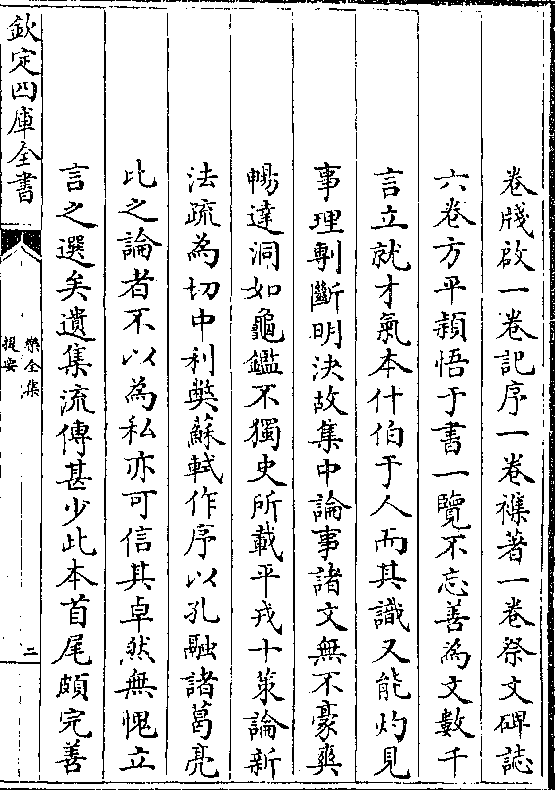 卷牋啟一卷記序一卷襍著一卷祭文碑誌
六卷方平穎悟于書一覽不忘善為文數千
言立就才氣本什伯于人而其識又能灼見
事理剸斷明決故集中論事諸文無不豪爽
暢達洞如龜鑑不獨史所載平戎十策論新
法疏為切中利獘蘇軾作序以孔融諸葛亮
比之論者不以為私亦可信其卓然無愧立
言之選矣遺集流傳甚少此本首尾頗完善
欽定四庫全書
樂全集
提要
二